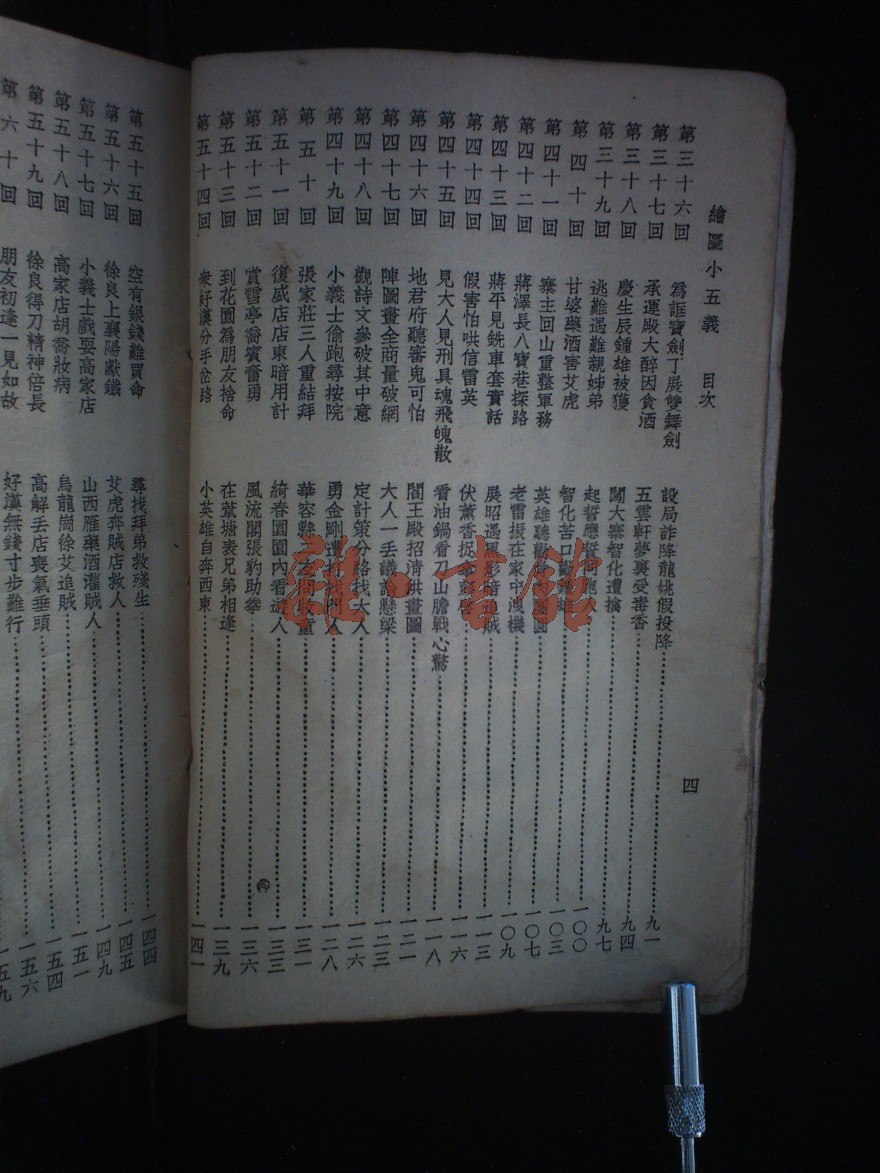 繪圖小五義 目次 四
第三十六回 為誆寶劍丁展雙舞劍 設局詐降龍姚假投降 九一
第三十七回 承運殿大醉因貪酒 五雲軒夢裏受毒香 九四
第三十八回 慶生辰鍾雄被獲 闖大寨智化遭擒 九七
第三十九回 逃難遇難親姊弟 起誓應誓 一〇〇
第四十回 甘婆藥酒害艾虎 智化苦口勸鍾雄 一〇三
第四十一回 寨主回山重整軍務 英雄聽勸 圓 一〇七
第四十二回 蔣澤長八寶巷探路 老雷振在家中洩機 一〇九
第四十三回 蔣平見銑車套實話 展昭遇 賊 一一三
第四十四回 假害怕哄信雷英 伏薰香捉 一一六
第四十五回 見大人見刑具魂飛魄散 看油鍋看刀山膽戰心驚 一一八
第四十六回 地君府聽審鬼可怕 閻王殿招清供畫圖 一二一
第四十七回 陣圖畫全商量破網 大人一丟議論懸梁 一二三
第四十八回 觀詩文參破其中意 定計策分路找大人 一二六
第四十九回 小義士偷跑尋按院 勇金剛遭 人 一二八
第五十回 張家莊三人重結拜 華容縣 童 一三一
第五十一回 復盛店店東暗用計 綺春園園內看 人 一三三
第五十二回 賞雪亭喬賓奮勇 風流閣張豹助拳 一三六
第五十三回 到花園為朋友捨命 在葦塘表兄弟相逢 一三九
第五十四回 衆好漢分手岔路 小英雄自奔西東 一四一
第五十五回 空有銀錢難買命 尋找拜弟救殘生 一四四
第五十六回 徐良上襄陽獻鐵 艾虎奔賊店救人 一四五
第五十七回 小義士戲耍高家店 山西雁藥酒灌賊人 一四九
第五十八回 高家店胡喬妝病 烏龍崗徐艾追賊 一五一
第五十九回 徐良得刀精神倍長 高解丢店喪氣垂頭 一五四
第六十回 朋友初逢一見如故 好漢無錢寸步難行 一五六
一五九
雜·書館